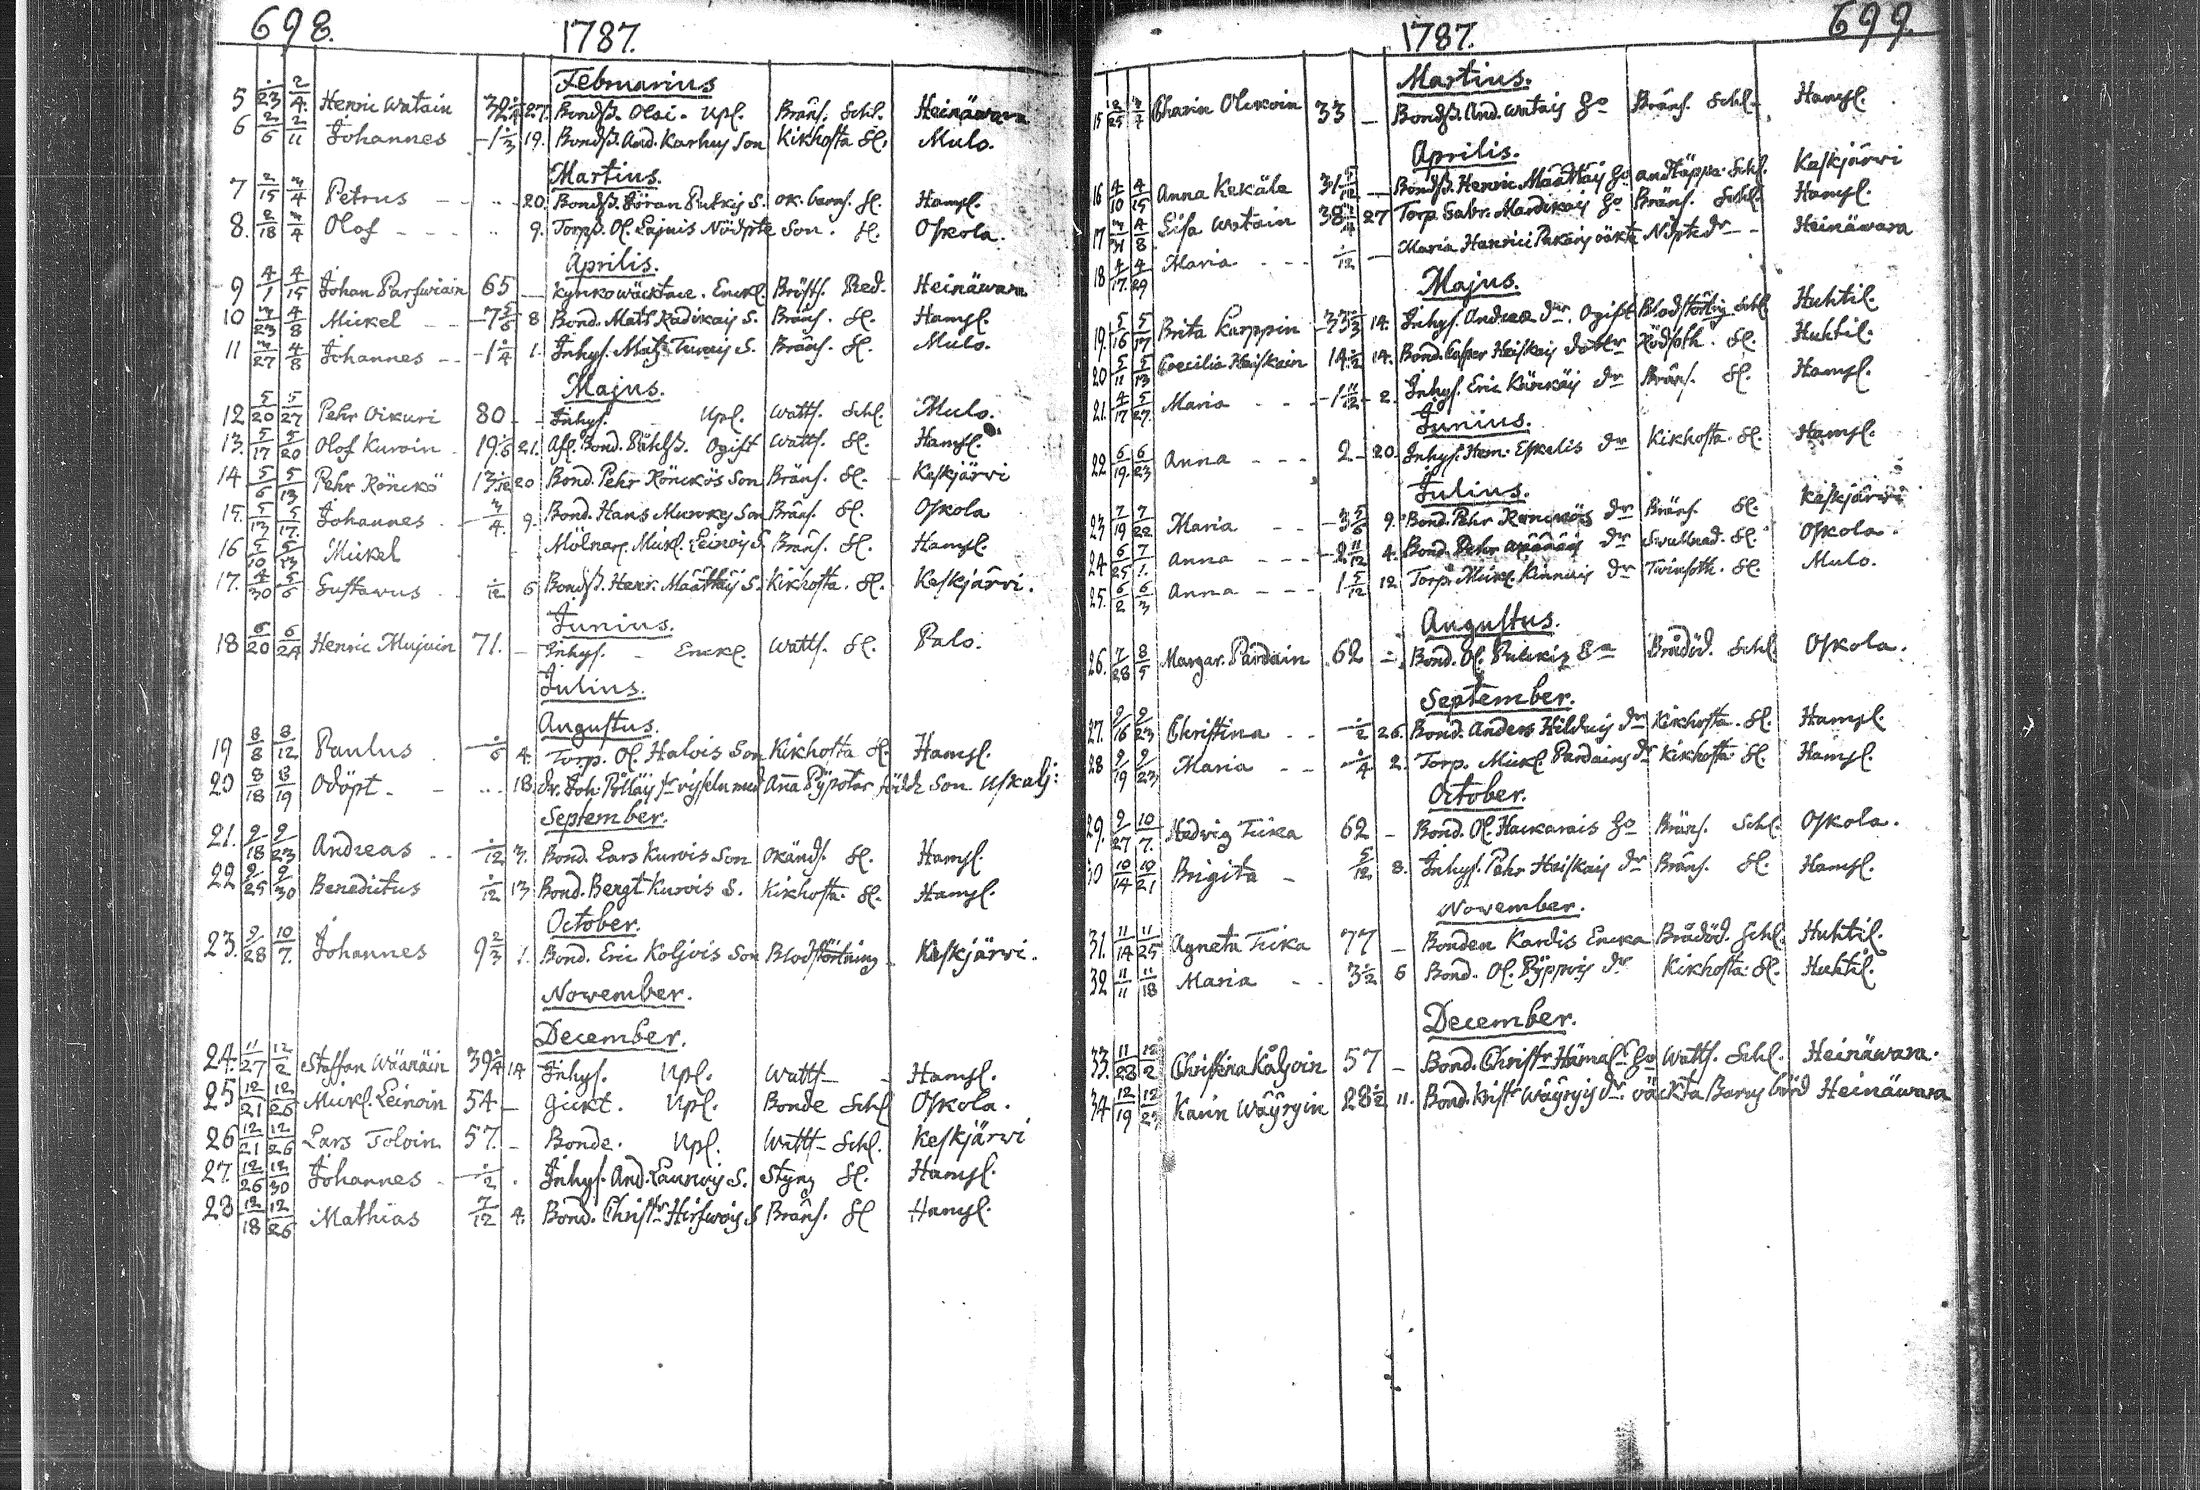 698.
1787.
Februarius
5 23/ 2/4. Henric Watain 39 27. Bondß. Olai. Upl. Bräns. Schl. Heinäwara
6 2/6 2/11 Johannes - 1 1/3 19. Bondß. And. Karhus Son Kikhosta Sl. Mulo.
Martius.
7 2/15 3/4 Petrus - - 20. Bondß. Jöran Putkis S. ok. barns. Sl. Hamsl.
8. 2/18 3/4 Olof - - - 9. Torpß. Ol. Lajuis Nödpte Son. Sl. Oskola.
Aprilis.
9 4/1 4/15 Johan Parswiain 65 - Kyrkowäcktare. Enckl. Bröstf. Red. Heinäwara
10 3/23 4/8 Mickel - - 7 5/6 8 Bond. Mats Radikais S. Bräns. Sl. Hamsl.
11 3/27 4/8 Johannes - - 1 1/4 1. Inhys. Mats Turuis S. Bräns. Sl. Mulo.
Majus.
12 5/20 5/27 Pehr Oikuri 80 - Inhys. Upl. Wattf. Schl. Mulo.
13. 5/17 5/20 Olof Kurvin - 19 1/6 21. Afl. Bond. Ogift Wattf. Sl. Hamsl.
14 5/6 5/13 Pehr Könckö 13 1/12 20 Bond. Pehr Könckös Son Bräns. Sl. - Keskjärvi
15. 5/13 5/17. Johannes - 3/4. 9. Bond. Hans Murkis Son Bräns. Sl. Oskola
16 5/10 5/13 Mickel Mölnar. Mickl. Leinois S. Bräns. Sl. Hamsl.
17. 4/30 5/6 Gustavus 1/12 6 Bondß. Henr. Määttäis S. Kikhosta. Sl. Keskjärvi.
Junius.
18 6/20 6/24 Henric Mujuin 71. - Inhys. - Enckl. Wattf. Sl. Palo.
Julius.
Augustus.
19 8/8 8/12 Paulus - 1/6 4. Torp. Ol. Halvis Son Kikhosta Sl. Hamsl.
20 8/18 8/19 Odöpt - - 18. Dr. Joh. Pölläis med Anna Pypotar född Son Uskalj:
September.
21. 9/18 9/23 Andreas - - 1/12 3. Bond. Lars Kurvis Son Okänds. Sl. Hamsl.
22 9/25 9/30 Benedictus 1/12 13 Bond. Bengt Kurvis S. Kikhosta. Sl. Hamsl.
October.
23. 9/28 10/7. Johannes 9 2/3 1. Bond. Eric Koljois Son Blodstörtning - Keskjärvi.
November.
December.
24. 11/27 12/2 Staffan Wäänäin 39 1/4 14 Inhys. Upl. Wattf - Hamsl.
25 12/21 12/26 Mickl. Leinoin 54 - Gickt. Upl. Bonde Schl Oskola.
26 12/21 12/26 Lars Tolvin 57. - Bonde. Upl. Wattf - Schl. Keskjärvi
27. 12/26 12/30 Johannes - 1/2 . Inhys. And. Laurois S. Styng Sl. Hamsl.
28 12/18 12/26 Mathias 7/12 4. Bond. Christr Hirswois S Bräns. Sl Hamsl.
699.
1787.
Martius.
15 2/25 3/4 Charin Olickoin 33 - Bondß. And. Watais Ho Bräns. Schl. Hamsl.
Aprilis.
16 4/10 4/15 Anna Kekäla 31 5/12 - Bondß. Henric Määttäis Ho andtäppa. Schl. Keskjärvi
17 3/31 4/8 Lisa Watain 38 27 Torp Gabr. Mardikais Ho Bräns. Schl. Hamsl.
18 4/17 4/29 Maria - - - 1/12 - Maria Henrici Pakäris oäkta Nöpte dr - - Heinäwara
Majus.
19. 5/16 5/17 Brita Karppin 33 2/3 14. Inhys. Andreæ dr. Ogift Blodstörtng Schl. Huhtil.
20 5/11 5/13 Cæcilia Heiskain 14 1/2 14. Bond. Casper Heiskais dotr Rödsoth. Sl. Huhtil.
21. 4/17 5/27. Maria - - 1 11/12 2. Inhys. Eric Käickäis dr Bräns. Sl. Hamsl.
Junius.
22 6/19. 6/23 Anna - - - 2 - 20. Inhys. Hen. Eskelis dr Kikhosta. Sl. Hamsl.
Julius.
23 7/19 7/22 Maria - - 3 5/6 9. Bond. Pehr Könckös dr Bräns. Sl. Keskjärvi
24 6/25 7/1. Anna - - - 2 11/12 4. Bond. Pehr Wäänäis dr Swullnad. Sl. Oskola.
25. 6/2 6/3 Anna - - - 1 5/12 12 Torp. Mickl. Kinnuis dr Twinsoth. Sl. Mulo.
Augustus.
26. 7/28 8/5 Margar. Pardain 62 - Bond. Ol. Pulckis Ea Brådöd. Schl. Oskola.
September.
27. 9/16 9/23 Christina - - 1/2 26. Bond. Anders Hilduis dr Kikhosta. Sl. Hamsl.
28 9/19 9/23 Maria - - 1/4 2. Torp. Mickl. Pardains dr Kikhosta Sl. Hamsl.
October.
29. 9/27 10/7. Hedwig Tiika 62 - Bond. Ol. Hackarais Ho Bräns. Schl. Oskola.
30 10/14 10/21 Brigita - 5/12 8. Inhys. Pehr Heiskais dr Bräns. Sl. Hamsl.
November.
31. 11/14 11/25 Agneta Tiika 77 - Bonden Kardis Encka Brådöd. Schl. Huhtil.
32 11/11 11/18 Maria - - 3 1/2 6 Bond. Ol. Pyppois dr Kikhosta: Sl. Huhtil.
December.
33. 11/28 12/2 Christina Kåljoin 57 - Bond. Christr Hämals Ho Wattf. Schl. Heinäwara.
34 12/19 12/2 Karin Wäyryin 28 1/2 11. Bond. Kristr Wäyryis dr oäckta Barns börd Heinäwara